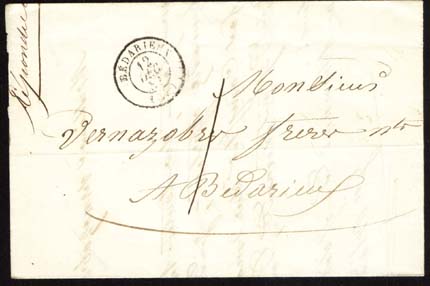 répondre
BÉDARIEUX
Messieurs
Vernazobre frères nts
A Bédarieux